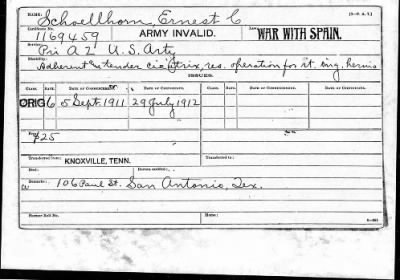 Name: Schoellhorn, Ernest C [3-P A 7.]
Certificate No. 1169459 ARMY INVALID. Law: WAR WITH SPAIN.
Service: Pri A 2" U.S. Arty
Disability: Adherent & tender cicatrix, res. operation for rt. ing. hernia
ISSUES.
CLASS. RATE. DATE OF COMMENCEMENT. DATE OF CERTIFICATE. CLASS. RATE. DATE OF COMMENCEMENT. DATE OF CERTIFICATE.
ORIG 6 5 Sept. 1911 29 July 1912
Fee: $25
Transferred from: KNOXVILLE, TENN. Transferred to:
Died:
Remarks: 106 Paul St. San Antonio, Tex.
Former Roll No. Home: